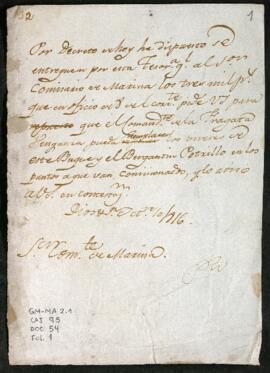 52
1
Por Decreto de hoy ha dispuesto se
entreguen por esta Tesor.a gl. al Sor
Comisario de Marina los tres mil p.s
que en oficio de de el corr.te pide Vd para
que el Comand.te de la Fragata
Venganza pueda los viveres de
este Buque y el Bergantin Potrillo en los
puntos a que van comisionados, y lo aviso
a Vd. en contestac.n
Dios &.a Oct.e 10/816.
S.or Com.te de Marina.
GM-MA 2.1
CAJ 95
DOC 54
FOL 1